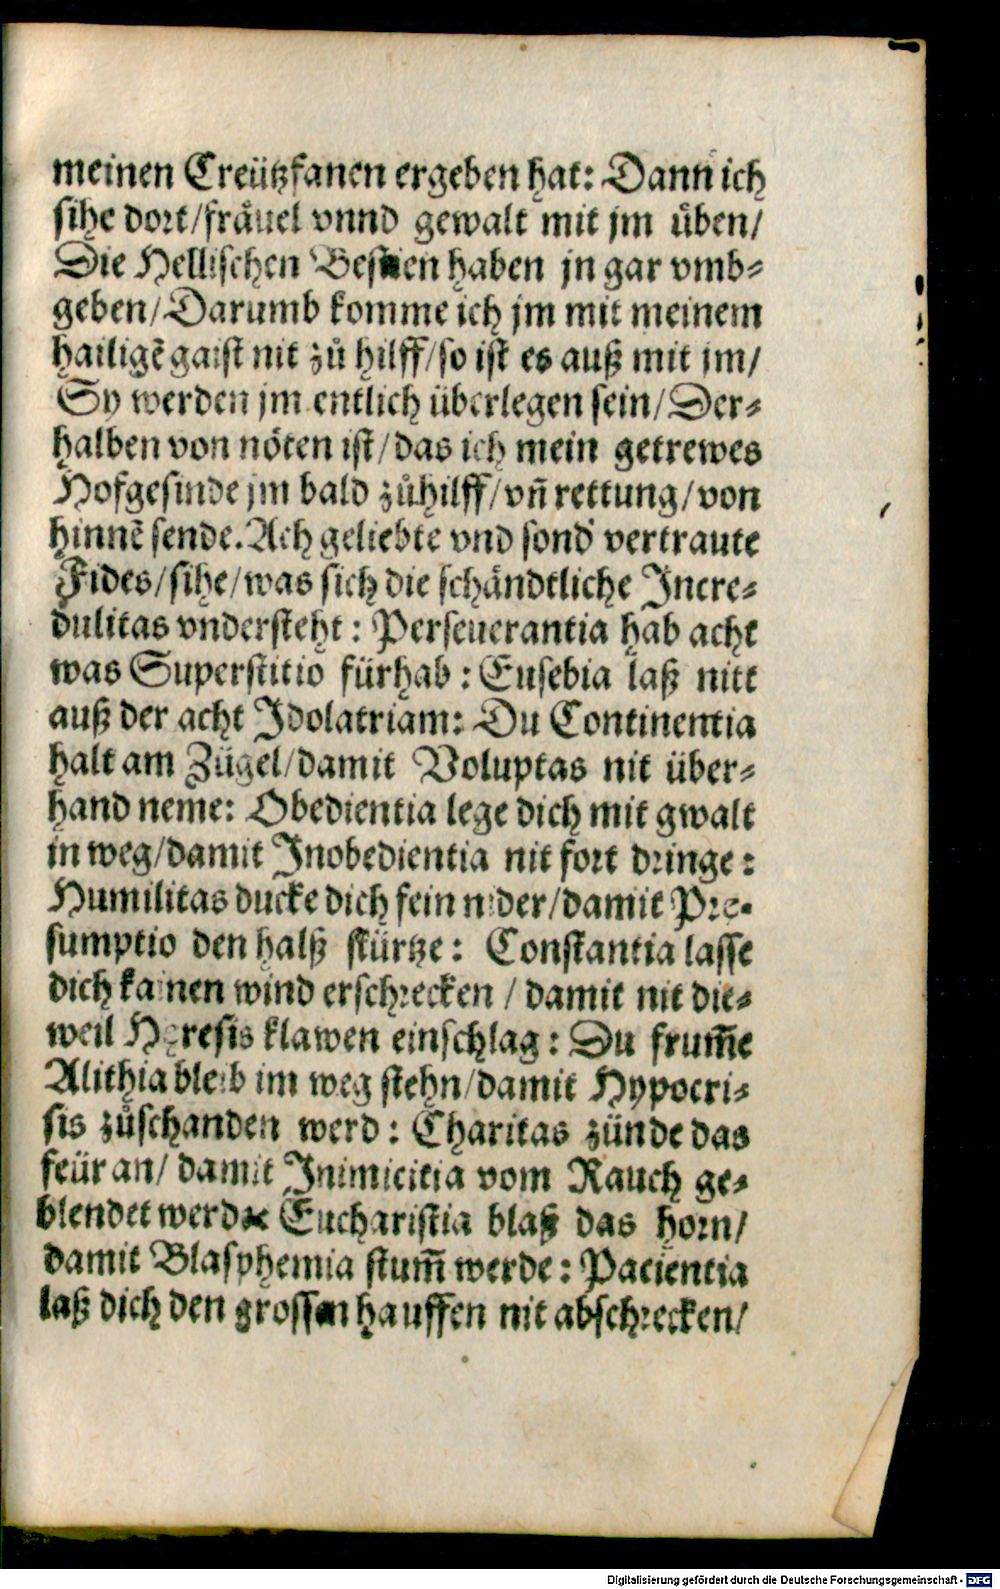 meinen Creützfanen ergeben hat: Dann ich
sihe dort/fräuel vnnd gewalt mit jm üben/
Die Hellischen Bestien haben jn gar vmb⸗
geben/Darumb komme ich jm mit meinem
hailigē gaist nit zů hilff/so ist es auß mit jm/
Sy werden jm entlich überlegen sein/Der⸗
halben von nöten ist/das ich mein getrewes
Hofgesinde jm bald zůhilff/vn̄ rettung/von
hinnē sende. Ach geliebte vnd sond' vertraute
Fides/sihe/was sich die schändtliche Incre⸗
dulitas vndersteht: Perseuerantia hab acht
was Superstitio fürhab: Eusebia laß nitt
auß der acht Idolatriam: Du Continentia
halt am Zügel/damit Voluptas nit über⸗
hand neme: Obedientia lege dich mit gwalt
in weg/damit Inobedientia nit fort dringe:
Humilitas ducke dich fein nider/damit Pre⸗
sumptio den halß stürtze: Constantia lasse
dich kainen wind erschrecken / damit nit die⸗
weil Hęresis klawen einschlag: Du frum̄e
Alithia bleib im weg stehn/damit Hypocri⸗
sis zůschanden werd: Charitas zünde das
feür an/ damit Inimicitia vom Rauch ge⸗
blendet werde: Eucharistia blaß das horn/
damit Blasphemia stum̄ werde: Pacientia
laß dich den grossen hauffen nit abschrecken/
Digitalisierung gefördert durch die Deutsche Forschungsgemeinschaft - DFG